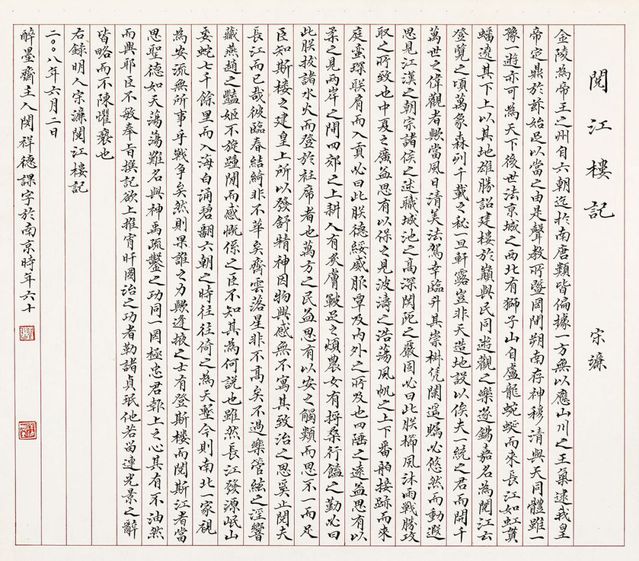 閱江樓記 宋濂
金陵為帝王之州自六朝迄於南唐類皆偏據一方無以應山川之王氣逮我皇
帝定鼎於茲始足以當之由是聲教所暨罔間朔南存神穆清與天同體雖一
豫一遊亦可為天下後世法京城之西北有獅子山自盧龍蜿蜒而來長江如虹貫
蟠遶其下上以其地雄勝詔建樓於巔與民同遊觀之樂遂錫嘉名為閱江云
登覽之頃萬象森列千載之秘一旦軒露豈非天造地設以俟夫一統之君而開千
萬世之偉觀者歟當風日清美法駕幸臨升其崇椒凭闌遙矚必悠然而動遐
思見江漢之朝宗諸侯之述職城池之高深關阨之嚴固必曰此朕櫛風沐雨戰勝攻
取之所致也中夏之廣益思有以保之見波濤之浩蕩風帆之上下番舶接跡而來
庭蠻琛聯肩而入貢必曰此朕德綏威服覃及內外之所及也四陲之遠益思有以
柔之見兩岸之間四郊之上耕人有炙膚皸足之煩農女有捋桑行饁之勤必曰
此朕拔諸水火而登於衽席者也萬方之民益思有以安之觸類而思不一而足
臣知斯樓之建皇上所以發舒精神因物興感無不寓其致治之思奚止閱夫
長江而已哉彼臨春結綺非不華矣齊雲落星非不高矣不過樂管絃之淫響
藏燕趙之豔姬不旋踵間而感慨係之臣不知其為何說也雖然長江發源岷山
委蛇七千餘里而入海白涌碧翻六朝之時往往倚之為天塹今則南北一家視
為安流無所事乎戰爭矣然則果誰之力歟逢掖之士有登斯樓而閱斯江者當
思聖德如天蕩蕩難名與神禹疏鑿之功同一罔極忠君報上之心其有不油然
而興耶臣不敏奉旨撰記欲上推宵旰圖治之功者勒諸貞珉他若留連光景之辭
皆略而不陳懼褻也
右錄明人宋濂閱江樓記
二〇〇八年六月二日
醉墨齋主人閔祥德課字於南京時年六十